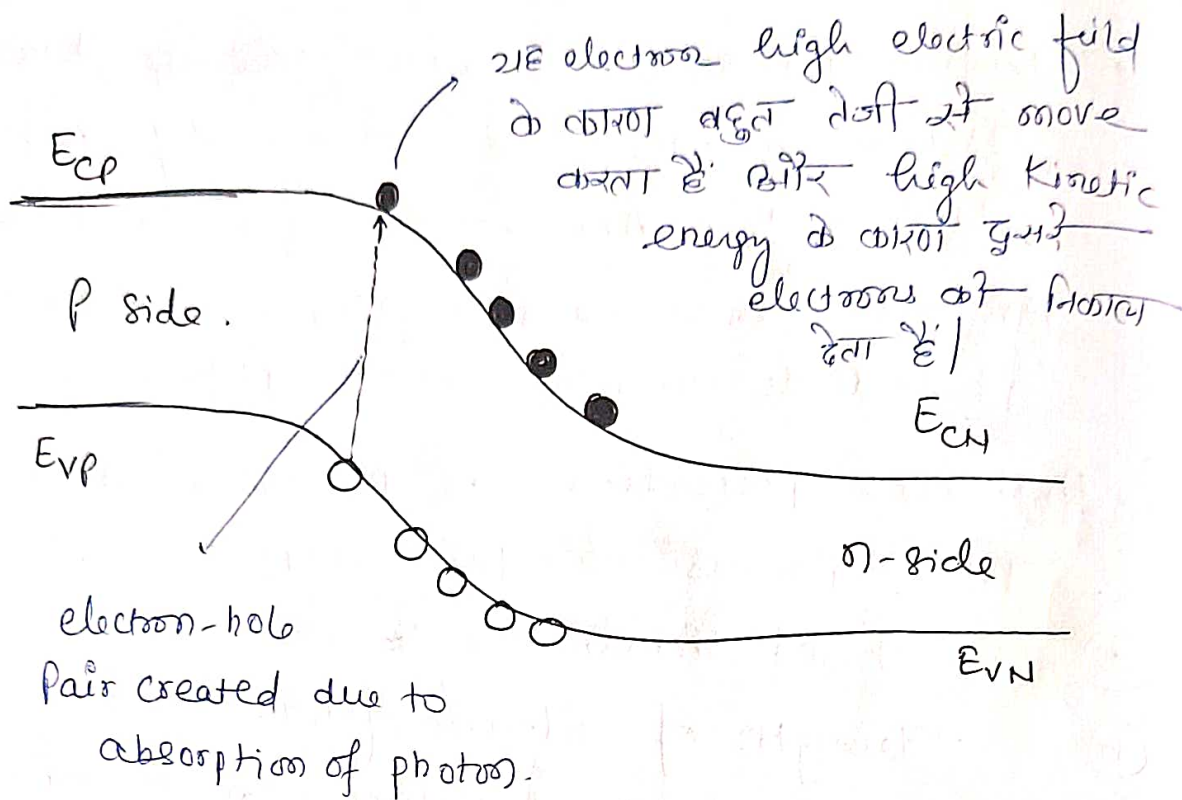 यह electron high electric field
के कारण बहुत तेजी से move
करता है और high Kinetic
energy के कारण दुसरे
electrons को निकाल
देता है।
ECP
P side.
EVP
ECN
n-side
EVN
electron-hole
Pair created due to
absorption of photon.